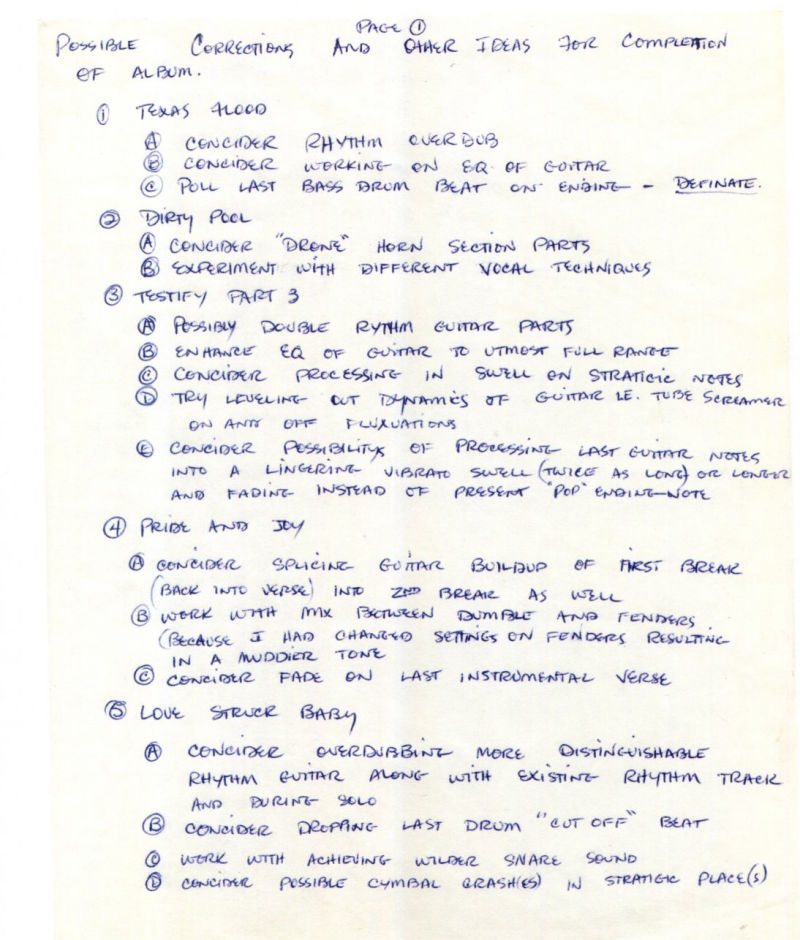 PAGE ①
POSSIBLE CORRECTIONS AND OTHER IDEAS FOR COMPLETION
OF ALBUM.
① TEXAS FLOOD
Ⓐ CONCIDER RHYTHM OVERDUB
Ⓑ CONCIDER WORKING ON EQ. OF GUITAR
Ⓒ POLL LAST BASS DRUM BEAT ON ENDING - DEFINATE.
② DIRTY POOL
Ⓐ CONCIDER "DRONE" HORN SECTION PARTS
Ⓑ EXPERIMENT WITH DIFFERENT VOCAL TECHNIQUES
③ TESTIFY PART 3
Ⓐ POSSIBLY DOUBLE RYTHM GUITAR PARTS
Ⓑ ENHANCE EQ OF GUITAR TO UTMOST FULL RANGE
Ⓒ CONCIDER PROCESSING IN SWELL ON STRATIGIC NOTES
Ⓓ TRY LEVELING OUT DYNAMICS OF GUITAR I.E. TUBE SCREAMER
ON AND OFF FLUXUATIONS
Ⓔ CONCIDER POSSIBILITYS OF PROCESSING LAST GUITAR NOTES
INTO A LINGERING VIBRATO SWELL (TWICE AS LONG) OR LONGER
AND FADING INSTEAD OF PRESENT "POP" ENDING-NOTE
④ PRIDE AND JOY
Ⓐ CONCIDER SPLICING GUITAR BUILDUP OF FIRST BREAK
(BACK INTO VERSE) INTO 2ND BREAK AS WELL
Ⓑ WORK WITH MIX BETWEEN DUMBLE AND FENDERS
(BECAUSE I HAD CHANGED SETTINGS ON FENDERS RESULTING
IN A MUDDIER TONE
Ⓒ CONCIDER FADE ON LAST INSTRUMENTAL VERSE
⑤ LOVE STRUCK BABY
Ⓐ CONCIDER OVERDUBBING MORE DISTINGUISHABLE
RHYTHM GUITAR ALONG WITH EXISTING RHYTHM TRACK
AND DURING SOLO
Ⓑ CONCIDER DROPPING LAST DRUM "CUT OFF" BEAT
Ⓒ WORK WITH ACHIEVING WILDER SNARE SOUND
Ⓓ CONCIDER POSSIBLE CYMBAL CRASH(ES) IN STRATIGIC PLACE(S)